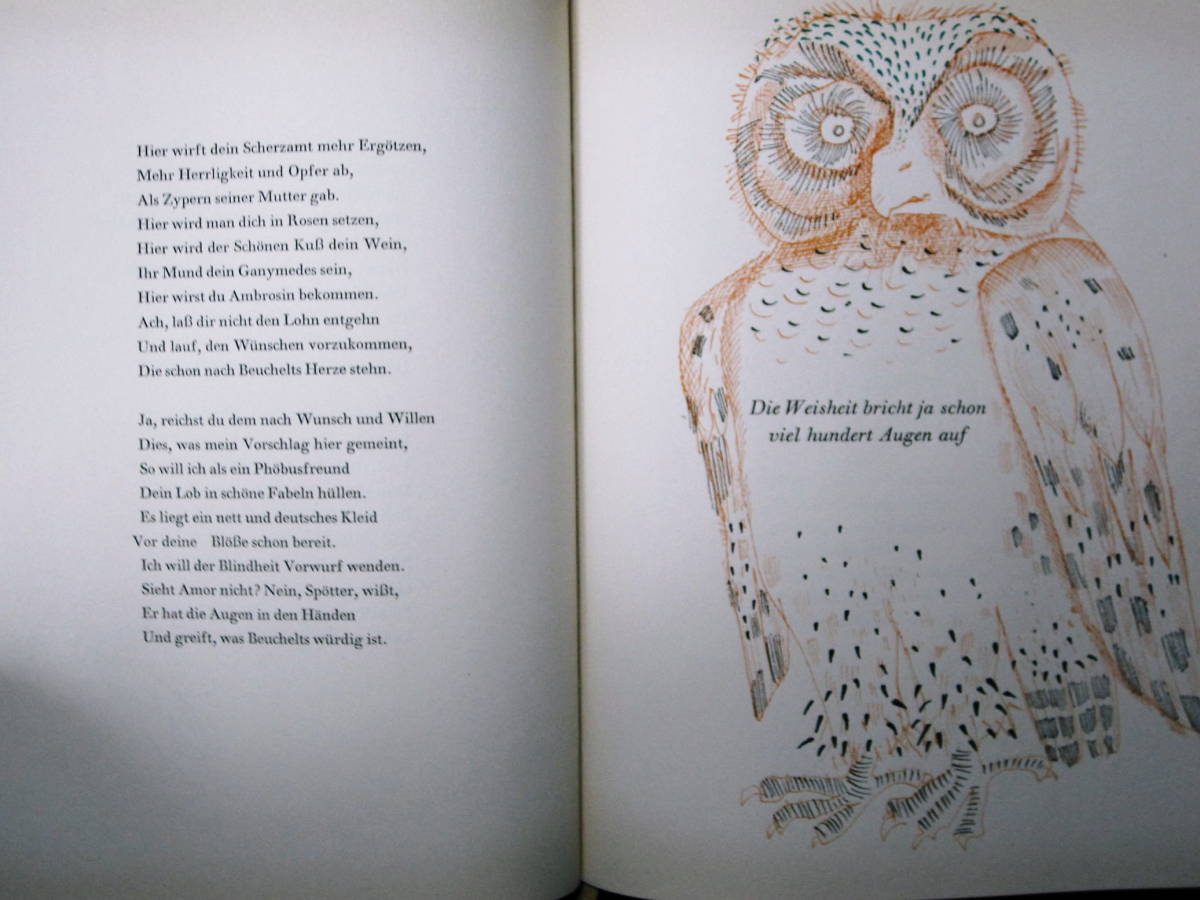 Hier wirft dein Scherzamt mehr Ergötzen,
Mehr Herrligkeit und Opfer ab,
Als Zypern seiner Mutter gab.
Hier wird man dich in Rosen setzen,
Hier wird der Schönen Kuß dein Wein,
Ihr Mund dein Ganymedes sein,
Hier wirst du Ambrosin bekommen.
Ach, laß dir nicht den Lohn entgehn
Und lauf, den Wünschen vorzukommen,
Die schon nach Beuchelts Herze stehn.

Ja, reichst du dem nach Wunsch und Willen
Dies, was mein Vorschlag hier gemeint,
So will ich als ein Phöbusfreund
Dein Lob in schöne Fabeln hüllen.
Es liegt ein nett und deutsches Kleid
Vor deine Blöße schon bereit.
Ich will der Blindheit Vorwurf wenden.
Sieht Amor nicht? Nein, Spötter, wißt,
Er hat die Augen in den Händen
Und greift, was Beuchelts würdig ist.

Die Weisheit bricht ja schon
viel hundert Augen auf